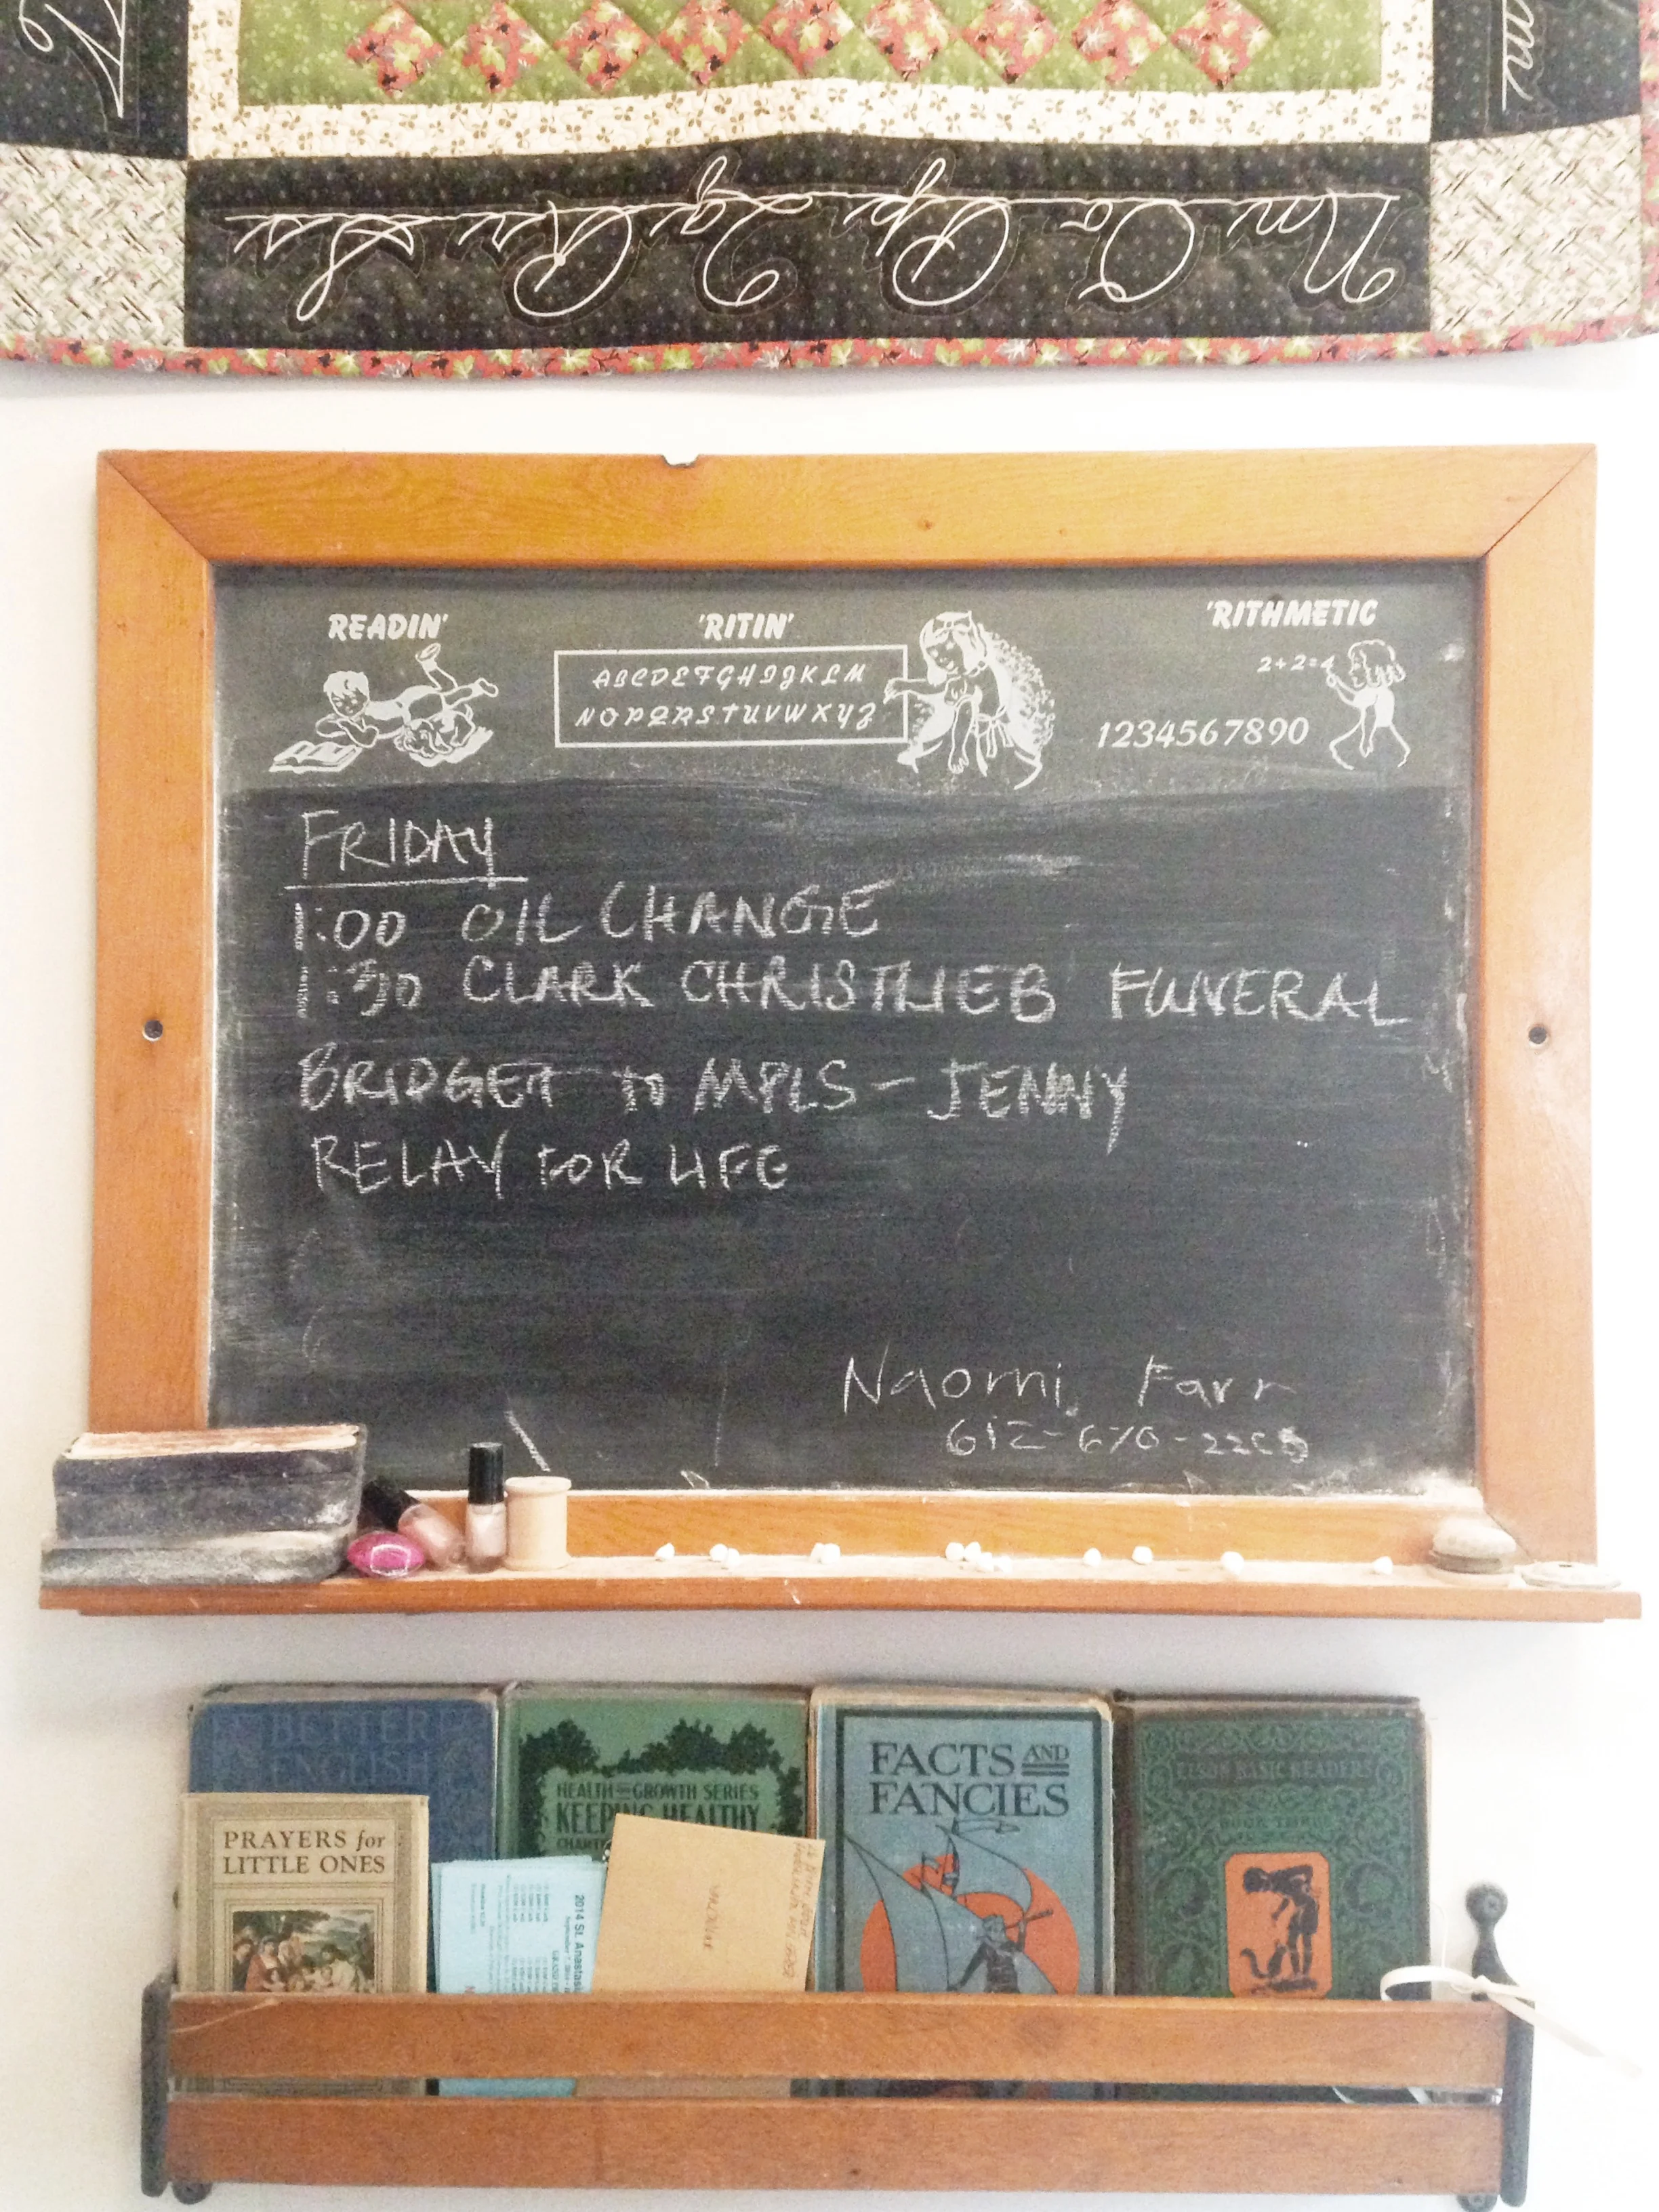 Nn Oo Pp Qq Rr Ss
READIN' 'RITIN' 'RITHMETIC
ABCDEFGHIJKLM
NOPQRSTUVWXYZ
2+2=4
1234567890
FRIDAY
1:00 OIL CHANGE
1:30 CLARK CHRISTLIEB FUNERAL
BRIDGET to MPLS - JENNY
RELAY FOR LIFE
Naomi Farr
612-670-
BETTER
ENGLISH
PRAYERS for
LITTLE ONES
HEALTH AND GROWTH SERIES
KEEPING HEALTHY
2014 St. Anastasi
FACTS AND
FANCIES
ELSON BASIC READERS
BOOK THREE